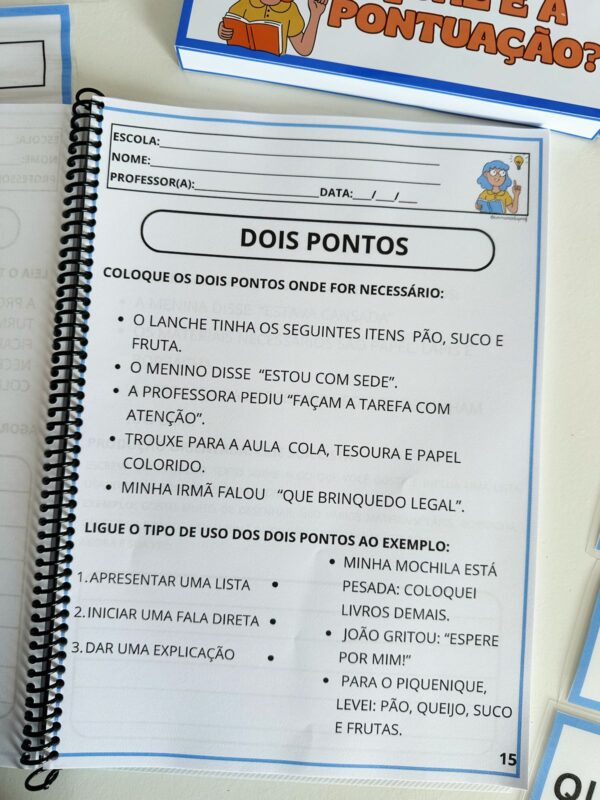 PONTUAÇÃO?
ESCOLA:
NOME:
PROFESSOR(A): DATA: / /
DOIS PONTOS
COLOQUE OS DOIS PONTOS ONDE FOR NECESSÁRIO:
• O LANCHE TINHA OS SEGUINTES ITENS PÃO, SUCO E
FRUTA.
• O MENINO DISSE “ESTOU COM SEDE”.
• A PROFESSORA PEDIU “FAÇAM A TAREFA COM
ATENÇÃO”.
• TROUXE PARA A AULA COLA, TESOURA E PAPEL
COLORIDO.
• MINHA IRMÃ FALOU “QUE BRINQUEDO LEGAL”.
LIGUE O TIPO DE USO DOS DOIS PONTOS AO EXEMPLO:
1. APRESENTAR UMA LISTA •
2. INICIAR UMA FALA DIRETA •
3. DAR UMA EXPLICAÇÃO •
• MINHA MOCHILA ESTÁ
PESADA: COLOQUEI
LIVROS DEMAIS.
• JOÃO GRITOU: “ESPERE
POR MIM!”
• PARA O PIQUENIQUE,
LEVEI: PÃO, QUEIJO, SUCO
E FRUTAS.
15